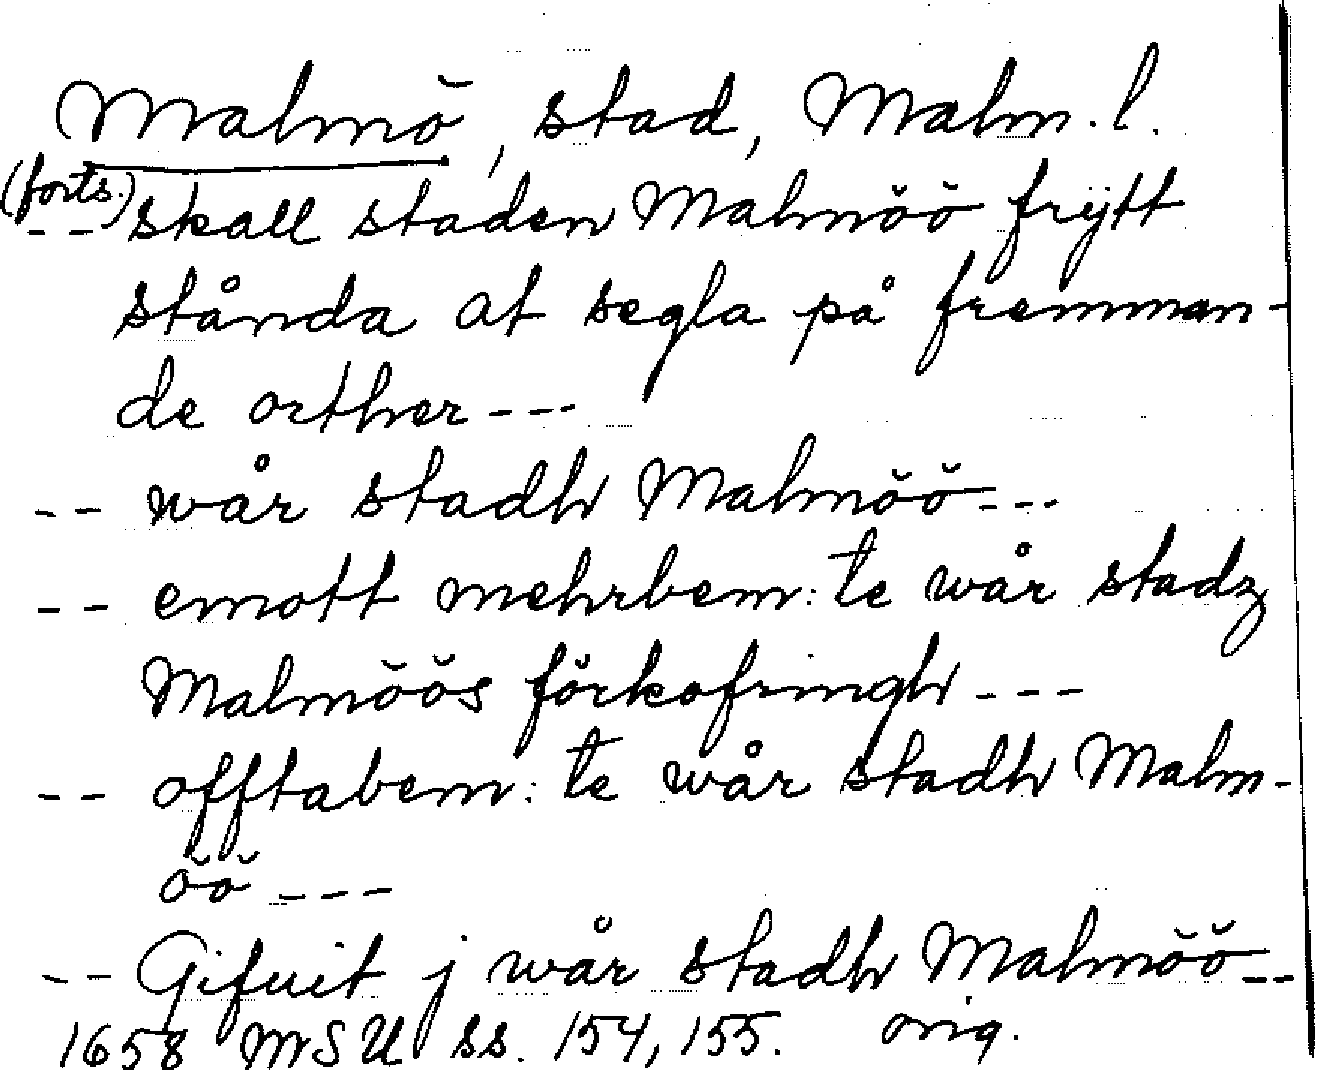 Malmö, stad, Malm. l.
(forts.)
-- skall staden Malmöö frijtt
stånda at segla på fremman-
de orther ---
-- wår stadh Malmöö ---
-- emott mehrbem:te wår stadz
Malmöös förkofringh ---
-- offtabem:te wår stadh Malm-
öö ---
-- Gifuit j wår stadh Malmöö --
1658 MSU ss. 154, 155. orig.